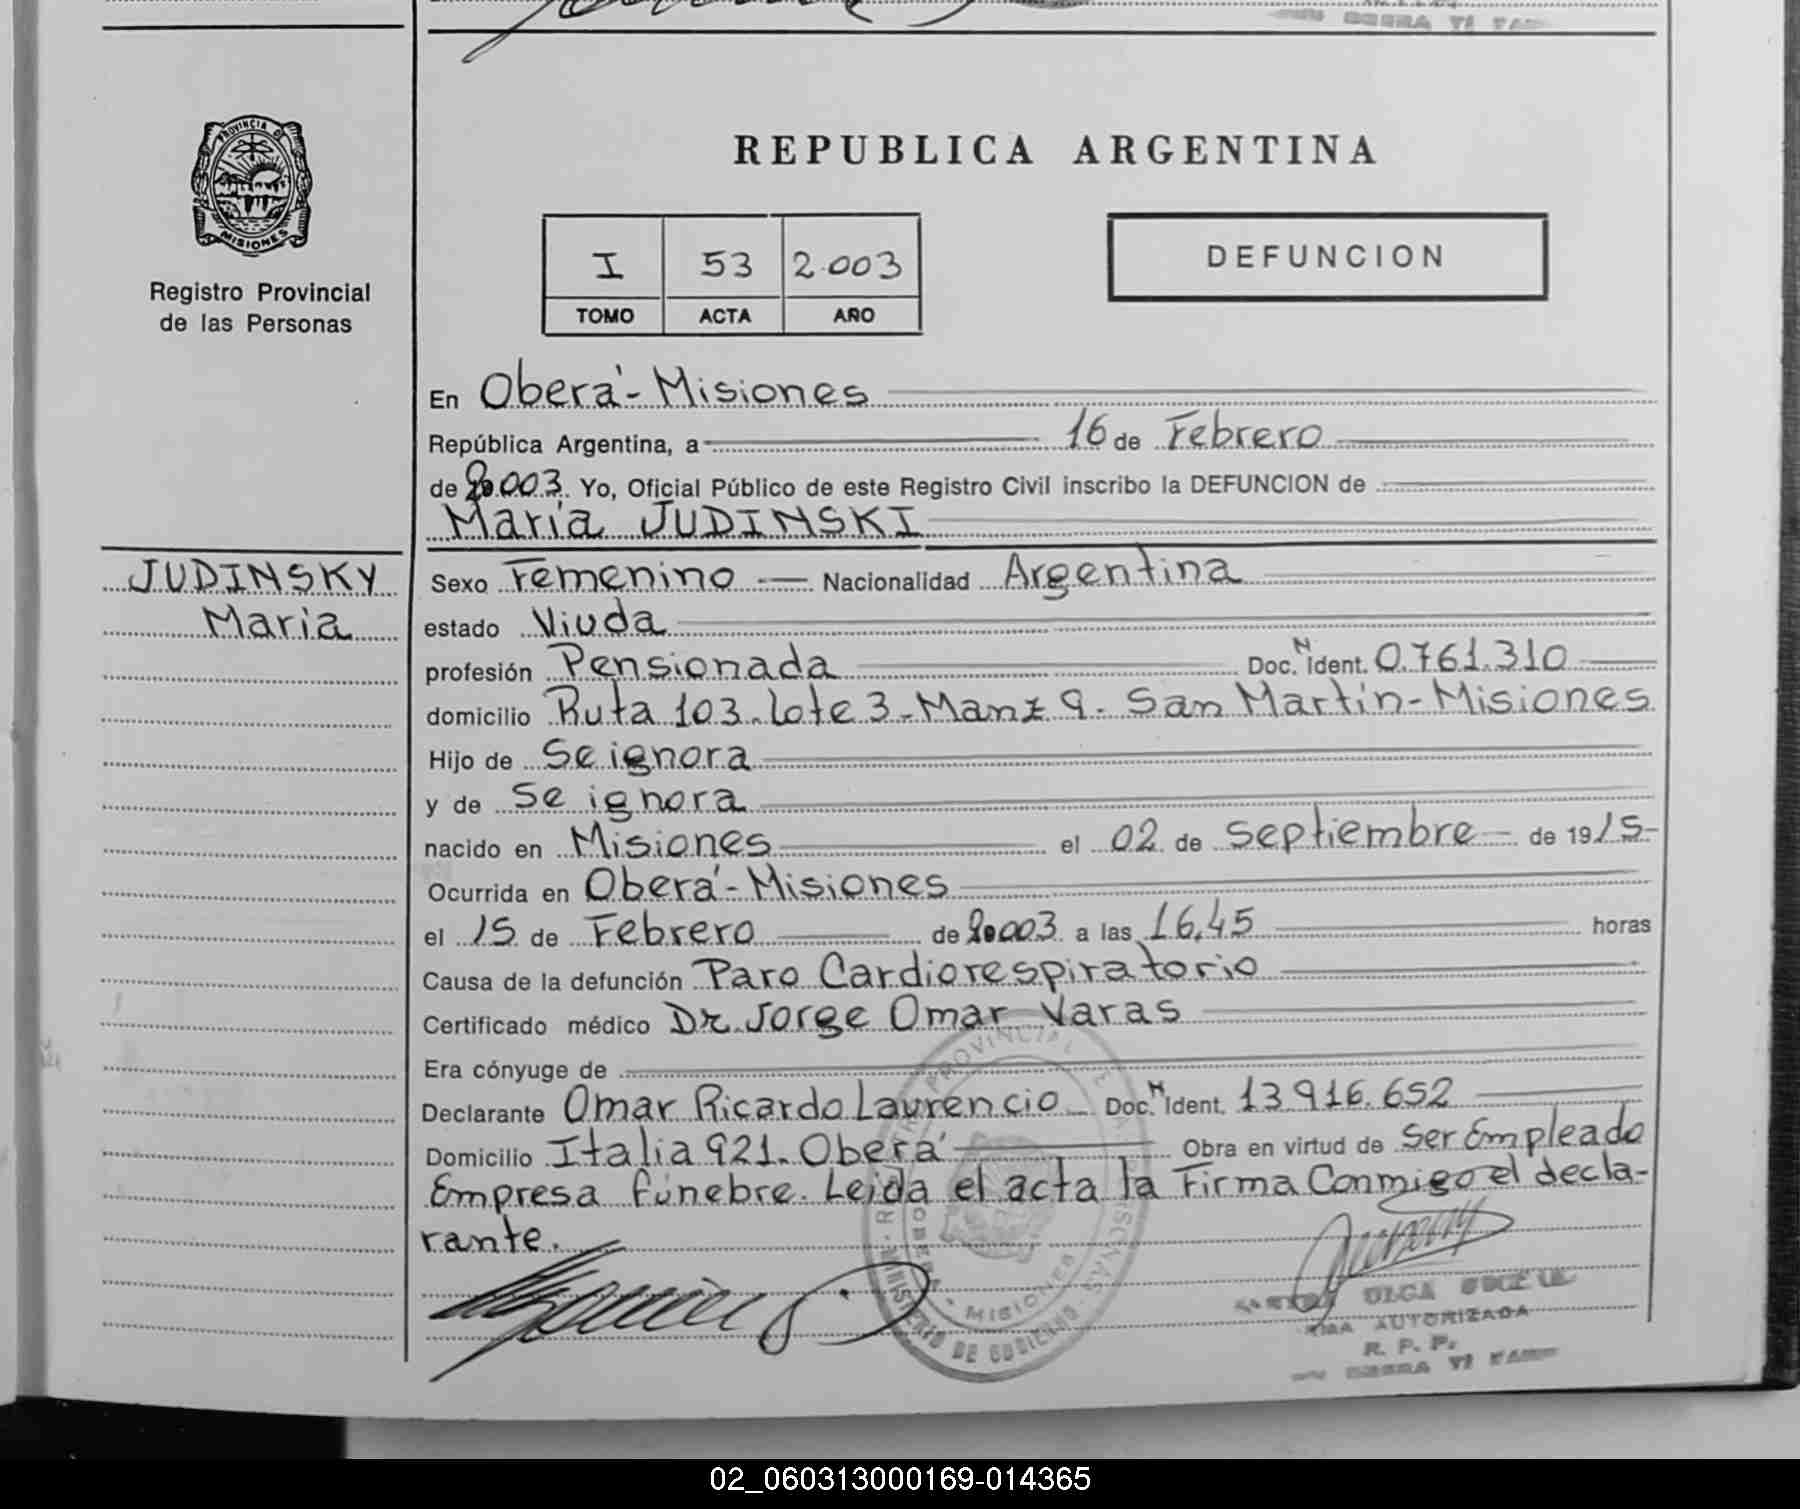 PROVINCIA DE
MISIONES
Registro Provincial
de las Personas
REPUBLICA ARGENTINA
I 53 2.003
TOMO ACTA AÑO
DEFUNCION
En Oberá - Misiones
República Argentina, a 16 de Febrero
de 2.003. Yo, Oficial Público de este Registro Civil inscribo la DEFUNCION de
María JUDINSKI
JUDINSKY
María
Sexo Femenino Nacionalidad Argentina
estado Viuda
profesión Pensionada Doc. N Ident. 0.761.310
domicilio Ruta 103. Lote 3 - Manz 9. San Martín - Misiones
Hijo de Se ignora
y de Se ignora
nacido en Misiones el 02 de Septiembre de 1915
Ocurrida en Oberá - Misiones
el 15 de Febrero de 2.003 a las 16,45 horas
Causa de la defunción Paro Cardiorespiratorio
Certificado médico Dr. Jorge Omar Varas
Era cónyuge de
Declarante Omar Ricardo Laurencio Doc. N Ident. 13916.652
Domicilio Italia 921. Oberá Obra en virtud de Ser Empleado
Empresa fúnebre. Leida el acta la Firma Conmigo el decla-
rante.
OLGA
AUTORIZADA
R. P. P.
MISIONES
MINISTERIO DE GOBIERNO
02_060313000169-014365